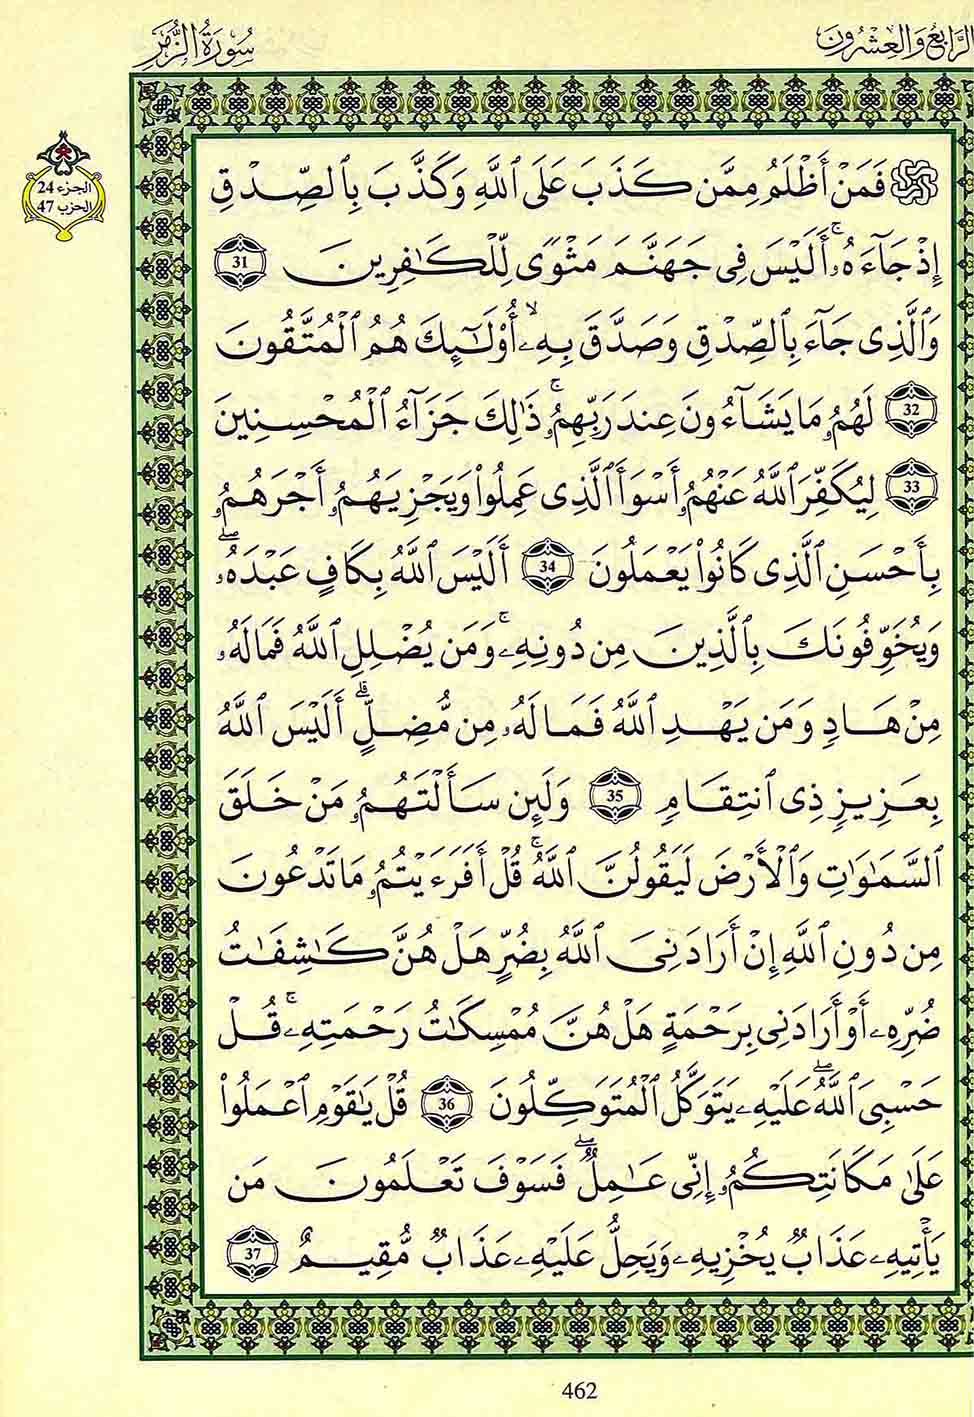 الرَّابِعُ وَالْعِشْرُونَ
سُورَةُ الزُّمَرِ
الجزء 24
الحزب 47
فَمَنْ أَظْلَمُ مِمَّن كَذَبَ عَلَى ٱللَّهِ وَكَذَّبَ بِالصِّدْقِ
إِذْ جَآءَهُۥٓۚ أَلَيْسَ فِى جَهَنَّمَ مَثْوًى لِّلْكَٰفِرِينَ 31
وَٱلَّذِى جَآءَ بِالصِّدْقِ وَصَدَّقَ بِهِۦۙ أُوْلَٰٓئِكَ هُمُ ٱلْمُتَّقُونَ
32 لَهُمُۥ مَا يَشَآءُونَ عِندَ رَبِّهِمُۥۚ ذَٰلِكَ جَزَآءُ ٱلْمُحْسِنِينَ
33 لِيُكَفِّرَ ٱللَّهُ عَنْهُمُۥٓ أَسْوَأَ ٱلَّذِى عَمِلُواْ وَيَجْزِيَهُمُۥٓ أَجْرَهُمُۥ
بِأَحْسَنِ ٱلَّذِى كَانُواْ يَعْمَلُونَ 34 أَلَيْسَ ٱللَّهُ بِكَافٍ عَبْدَهُۥۖ
وَيُخَوِّفُونَكَ بِالَّذِينَ مِن دُونِهِۦۚ وَمَن يُضْلِلِ ٱللَّهُ فَمَا لَهُۥ
مِنْ هَادٍ وَمَن يَهْدِ ٱللَّهُ فَمَا لَهُۥ مِن مُّضِلٍّۗ أَلَيْسَ ٱللَّهُ
بِعَزِيزٍ ذِى ٱنتِقَامٍ 35 وَلَئِن سَأَلْتَهُمُۥ مَنْ خَلَقَ
ٱلسَّمَٰوَٰتِ وَٱلْأَرْضَ لَيَقُولُنَّ ٱللَّهُۚ قُلْ أَفَرَءَيْتُمُۥ مَا تَدْعُونَ
مِن دُونِ ٱللَّهِ إِنْ أَرَادَنِىَ ٱللَّهُ بِضُرٍّ هَلْ هُنَّ كَٰشِفَٰتُ
ضُرِّهِۦٓ أَوْ أَرَادَنِى بِرَحْمَةٍ هَلْ هُنَّ مُمْسِكَٰتُ رَحْمَتِهِۦۚ قُلْ
حَسْبِىَ ٱللَّهُۖ عَلَيْهِۦ يَتَوَكَّلُ ٱلْمُتَوَكِّلُونَ 36 قُلْ يَٰقَوْمِ ٱعْمَلُواْ
عَلَىٰ مَكَانَتِكُمُۥٓ إِنِّى عَٰمِلٌۖ فَسَوْفَ تَعْلَمُونَ مَن
يَأْتِيهِۦ عَذَابٌ يُخْزِيهِۦ وَيَحِلُّ عَلَيْهِۦ عَذَابٌ مُّقِيمٌ 37
462